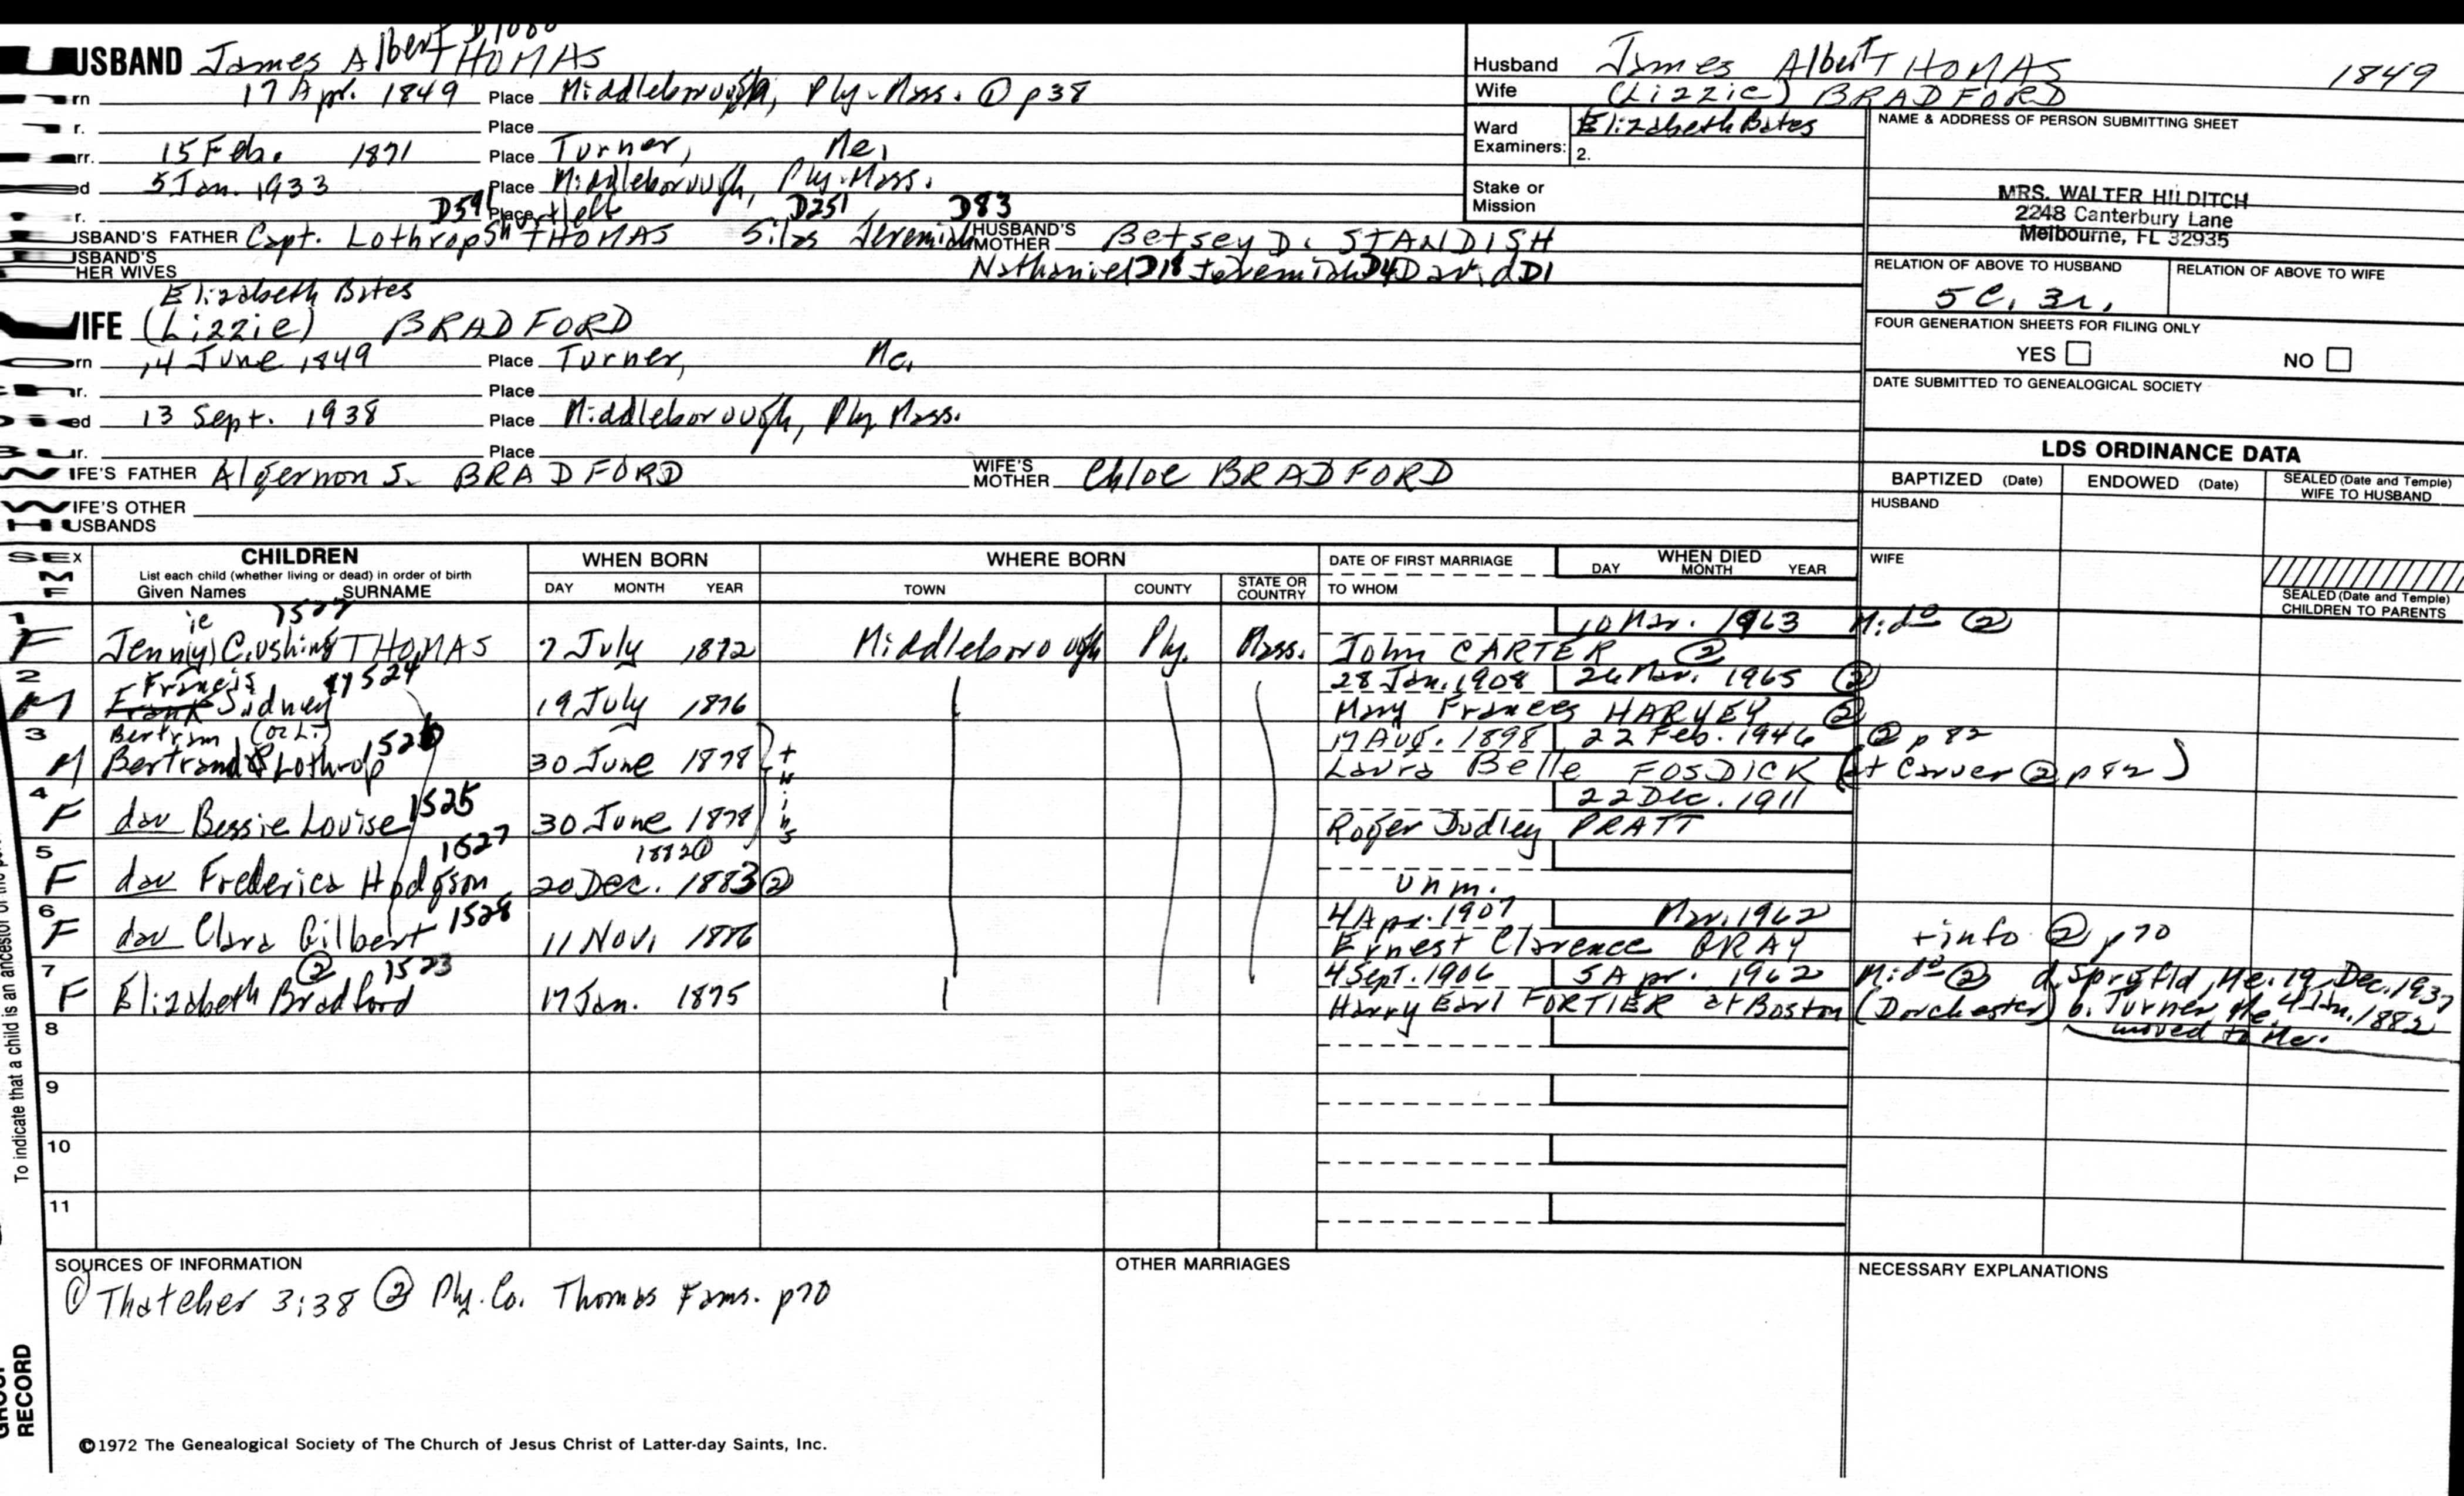 D1080
USBAND James Albert THOMAS
rn 17 Apr. 1849 Place Middleborough, Ply. Mass. ① p38
r. Place
arr. 15 Feb. 1871 Place Turner, Me.
ed 5 Jan. 1933 Place Middleborough, Ply. Mass.
r. Place
D251 D83
USBAND'S FATHER Capt. Lothrop Shurtleff THOMAS Silas Jeremiah HUSBAND'S MOTHER Betsey D. STANDISH
USBAND'S HER WIVES Nathaniel D18 Jeremiah D4 David D1
Elizabeth Bates
IFE (Lizzie) BRADFORD
rn 14 June 1849 Place Turner, Me.
r. Place
ed 13 Sept. 1938 Place Middleborough, Ply. Mass.
ur. Place
IFE'S FATHER Algernon S. BRADFORD WIFE'S MOTHER Chloe BRADFORD
WIFE'S OTHER
HUSBANDS
Husband James Albert THOMAS 1849
Wife (Lizzie) BRADFORD
Ward Examiners: Elizabeth Bates
2.
Stake or Mission
NAME & ADDRESS OF PERSON SUBMITTING SHEET
MRS. WALTER HILDITCH
2248 Canterbury Lane
Melbourne, FL 32935
RELATION OF ABOVE TO HUSBAND RELATION OF ABOVE TO WIFE
5C. 3r.
FOUR GENERATION SHEETS FOR FILING ONLY
YES NO
DATE SUBMITTED TO GENEALOGICAL SOCIETY
LDS ORDINANCE DATA
BAPTIZED (Date) ENDOWED (Date) SEALED (Date and Temple) WIFE TO HUSBAND
HUSBAND
WIFE
SEALED (Date and Temple) CHILDREN TO PARENTS
SEX M F
CHILDREN
List each child (whether living or dead) in order of birth
Given Names SURNAME
WHEN BORN
DAY MONTH YEAR
WHERE BORN
TOWN COUNTY STATE OR COUNTRY
DATE OF FIRST MARRIAGE
TO WHOM
WHEN DIED
DAY MONTH YEAR
ie
10 Mar. 1963 Mid° ②
1 F Jenny Cushing THOMAS 7 July 1872 Middleborough Ply. Mass. John CARTER ②
Francis 1524 28 Jan. 1908 26 Mar. 1965 ②
2 M Frank Sidney 19 July 1876 Mary Frances HARVEY ②
Bertram (or L.) 1526 17 Aug. 1898 22 Feb. 1946 ② p 82
3 M Bertrand Lothrop 30 June 1878 Laura Belle FOSDICK (at Carver ② p 82)
twins
1525 22 Dec. 1911
4 F dau Bessie Louise 30 June 1878 Roger Dudley PRATT
1527 1882①
5 F dau Frederica Hodgson 20 Dec. 1883② unm.
1528 4 Apr. 1907 Mar. 1962
6 F dau Clara Gilbert 11 Nov. 1886 Ernest Clarence GRAY +info ② p70
② 1523 4 Sept. 1906 5 Apr. 1962 Mid° ② d. Sprgfld, Me. 19 Dec. 1937
7 F Elizabeth Bradford 17 Jan. 1875 Harry Earl FORTIER at Boston (Dorchester) b. Turner, Me. 4 Jan. 1882
moved to Me.
8
9
10
11
To indicate that a child is an ancestor of the
SOURCES OF INFORMATION
① Thatcher 3:38 ② Ply. Co. Thomas Fams. p70
OTHER MARRIAGES
NECESSARY EXPLANATIONS
RECORD
©1972 The Genealogical Society of The Church of Jesus Christ of Latter-day Saints, Inc.